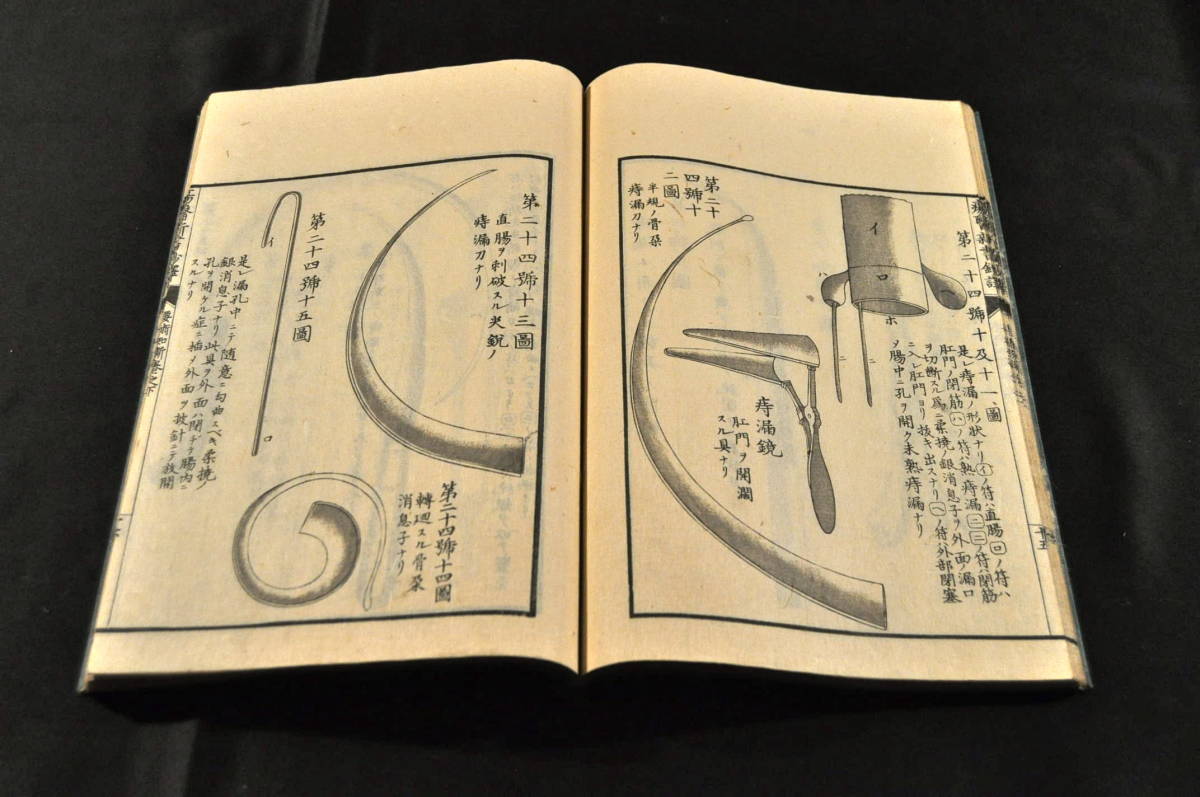 第二十四號十及十一圖
是レ痔漏ノ形狀ナリ(イ)ノ符ハ直腸(ロ)ノ符ハ
肛門ノ閉筋(ハ)ノ符ハ熟痔漏(ニ)(ニ)ノ符ハ閉筋
ヲ切断スル爲ニ柔撓ノ銀消息子ヲ外面ノ漏口
ニ入レ肛門ヨリ抜キ出スナリ(ヘ)ノ符ハ外部閉塞
メ腸中ニ孔ヲ開ク未熟痔漏ナリ
イ
ロ
ハ
ニ
ニ
ホ
痔漏鏡
肛門ヲ開濶
スル具ナリ
第二十
四號十
二圖
半規ノ骨朶
痔漏刀ナリ
五
第二十四號十三圖
直腸ヲ刺破スル尖鋭ノ
痔漏刀ナリ
第二十四號十四圖
轉廻スル骨朶
消息子ナリ
第二十四號十五圖
イ
ロ
是レ漏孔中ニテ随意ニ勾曲スベキ柔撓ノ
銀消息子ナリ此具ヲ外面ハ閉ヂテ腸内ニ
孔ヲ開ケル症ニ插メ外面ヲ披針ニテ救開
スルナリ